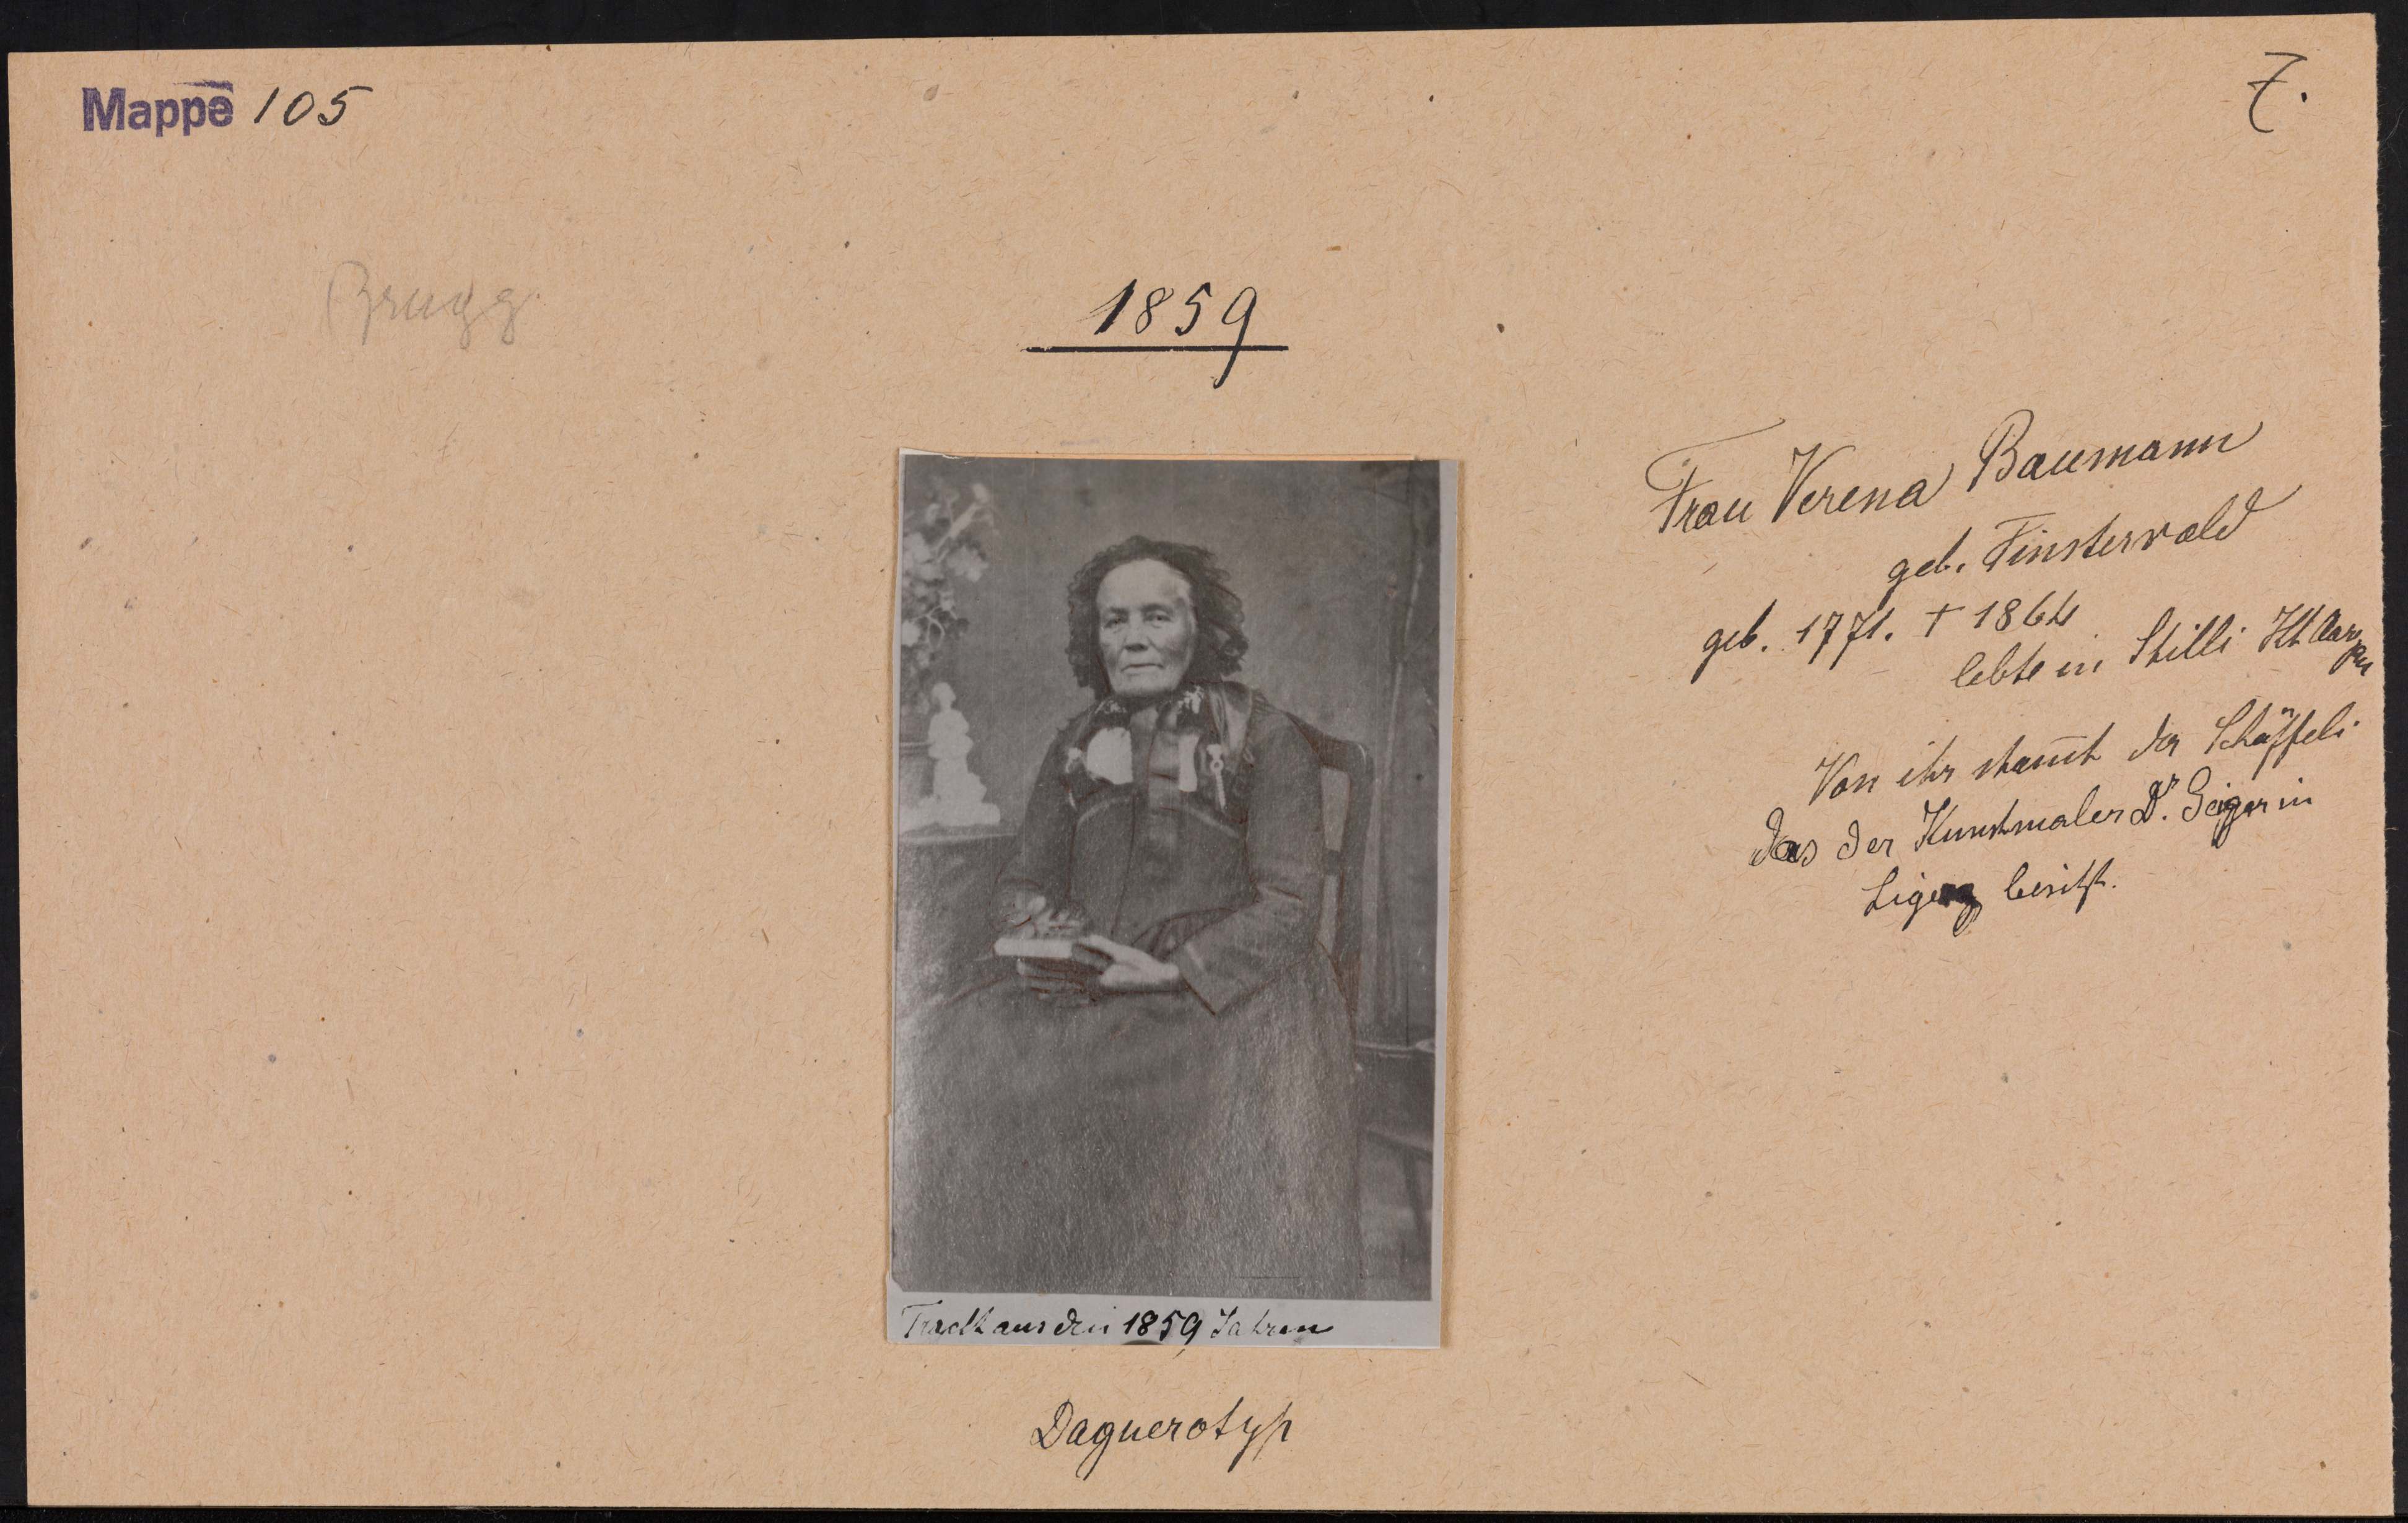 Mappe 105
7.
Brugg.
1859
Frau Verena Baumann
geb. Finsterwald
geb. 1771. † 1864
lebte in Stilli Kt Aargau
Von ihr stam̄t das Schäffeli
das der Kunstmaler Dr. Geiger in
Ligerz besitzt.
Tracht aus den 1859 Jahren
Daguerotyp